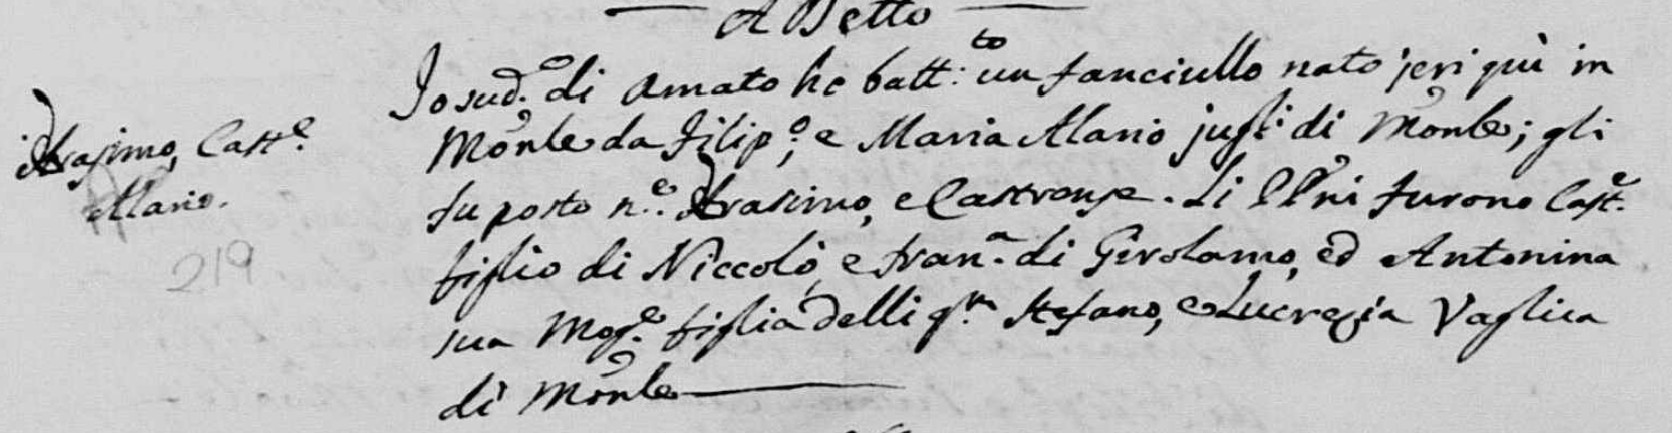 A Detto
Io sud.º di Amato ho batt:to un fanciullo nato jeri quì in
Monle da Filip.º, e Maria Alario jugli di Monle; gli
Erasimo, Cast.e
fu posto n.e Erasimo, e Castrense. Li PPñi furono Cast.e
Alario.
figlio di Niccolò, e Fran.a di Girolamo, ed Antonina
219
sua Mog.e figlia delli q.m Stefano, e Lucrezia Vaglica
di Monle